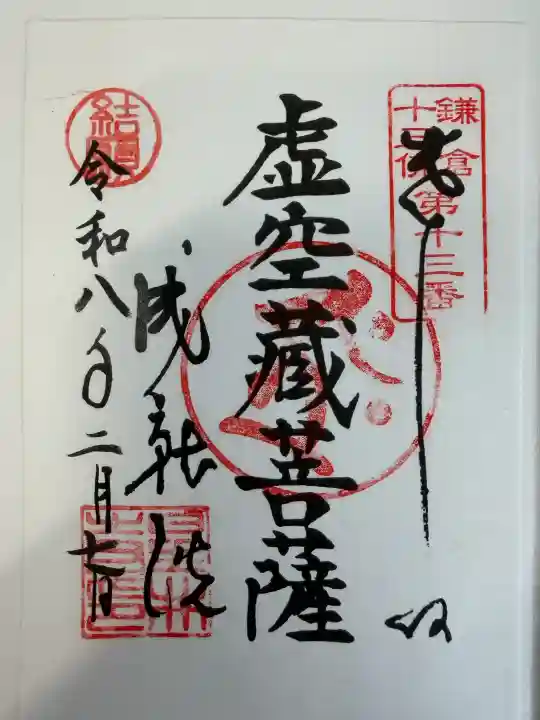 鎌倉
十三仏第十三番
奉拝
虚空蔵菩薩
成就院
結願
令和八年二月七日